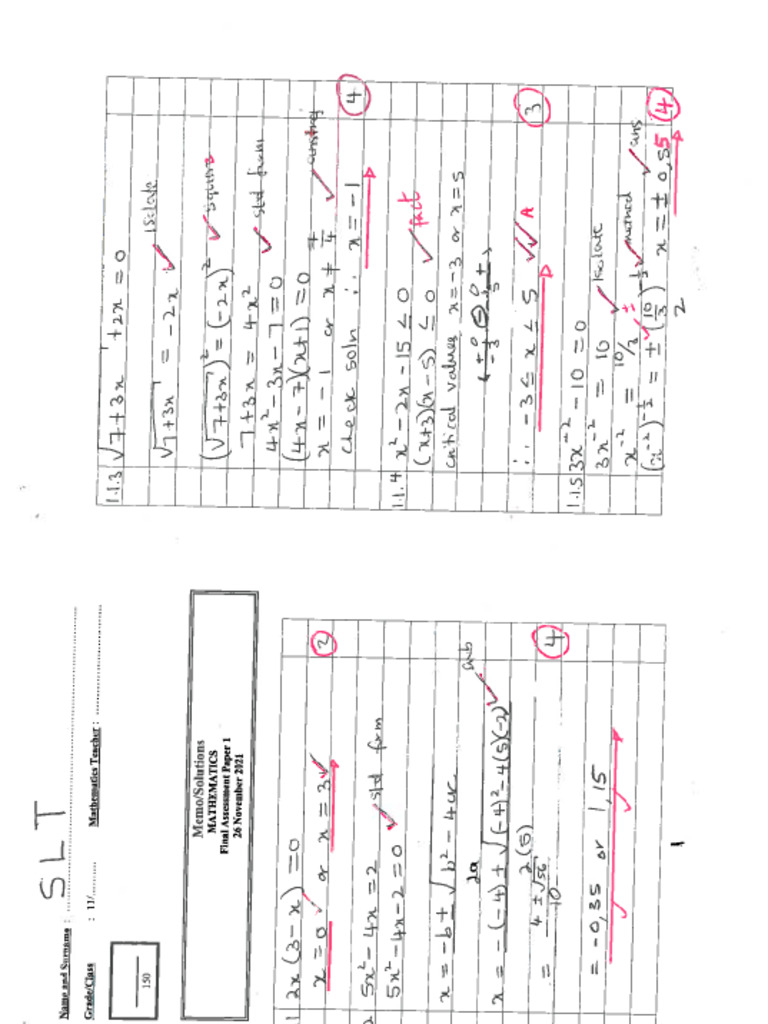 SLT
Name and Surname : ..........
Grade/Class : 11/.......... Mathematics Teacher : ..........
150
Memo/Solutions
MATHEMATICS
Final Assessment Paper 1
26 November 2021
1 2x(3-x) = 0
x = 0 or x = 3 ✓
②
2 5x² - 4x = 2
5x² - 4x - 2 = 0 ✓ std form
x = -b ± √b² - 4ac
2a
x = -(-4) ± √(-4)² - 4(5)(-2) ✓ sub
2(5)
= 4 ± √56
10
④
= -0,35 or 1,15
1
1.1.3 √7+3x + 2x = 0
√7+3x = -2x ✓ isolate
(√7+3x)² = (-2x)² ✓ square
7+3x = 4x²
4x² - 3x - 7 = 0 ✓ std form
(4x-7)(x+1) = 0
x = -1 or x ≠ 7/4 ✓
check soln ∴ x = -1
④
1.1.4 x² - 2x - 15 ≤ 0
(x+3)(x-5) ≤ 0 ✓ fact
critical values x = -3 or x = 5
+ 0 ⊖ 0 +
-3 5
∴ -3 ≤ x ≤ 5 ✓✓ A
③
1.1.5 3x⁻² - 10 = 0
3x⁻² = 10 Isolate
x⁻² = 10/3 ✓ ± method
(x⁻²)^-½ = ± (10/3)^-½ ✓ ans
x = ± 0,55
④
2